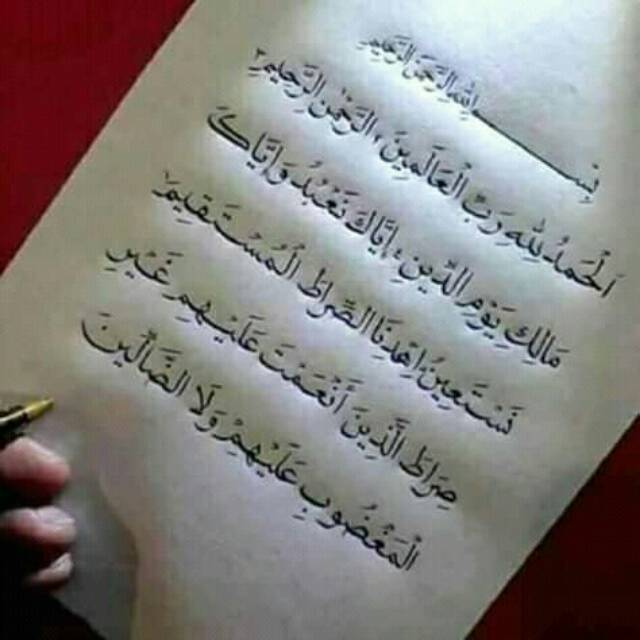 بِسْمِ اللهِ الرَّحْمٰنِ الرَّحِيمِ
اَلْحَمْدُ لِلّٰهِ رَبِّ الْعَالَمِينَ ١ الرَّحْمٰنِ الرَّحِيمِ ٢
مَالِكِ يَوْمِ الدِّينِ ٤ إِيَّاكَ نَعْبُدُ وَإِيَّاكَ
نَسْتَعِينُ ٥ اِهْدِنَا الصِّرَاطَ الْمُسْتَقِيمَ ٦
صِرَاطَ الَّذِينَ أَنْعَمْتَ عَلَيْهِمْ غَيْرِ
الْمَغْضُوبِ عَلَيْهِمْ وَلَا الضَّالِّينَ